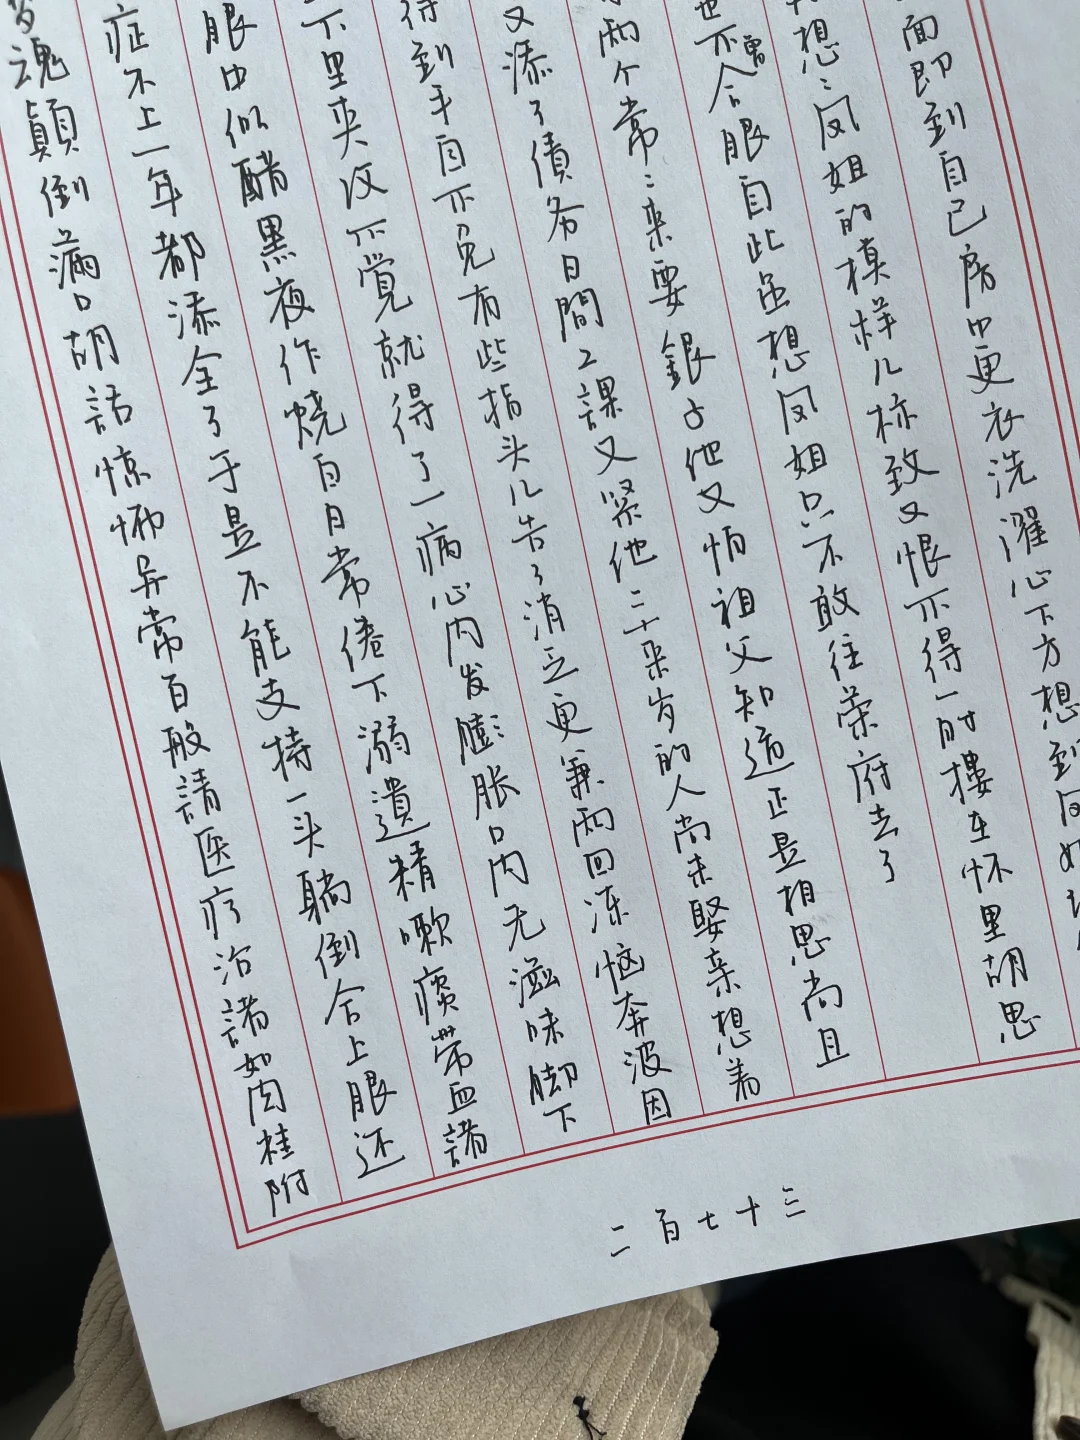 面即到自己房中更衣洗濯心下方想到
想〻凤姐的模样儿标致又恨不得一时樓在怀里胡思
也不曾合眼自此虽想凤姐只不敢往荣府去了
两个常〻来要銀子他又怕祖父知道正是相思尚且
又添了債务日間工課又紧他二十来岁的人尚未娶亲想着
得到手自不免有些指头儿告了消乏更兼两回冻恼奔波因
下里夹攻不覺就得了一病心内发膨胀口内无滋味脚下
眼中似醋黑夜作烧白日常倦下溺遺精嗽痰带血諸
症不上一年都添全了于是不能支持一头躺倒合上眼还
魂顛倒滿口胡話惊怖异常百般請医疗治諸如肉桂附
二百七十三